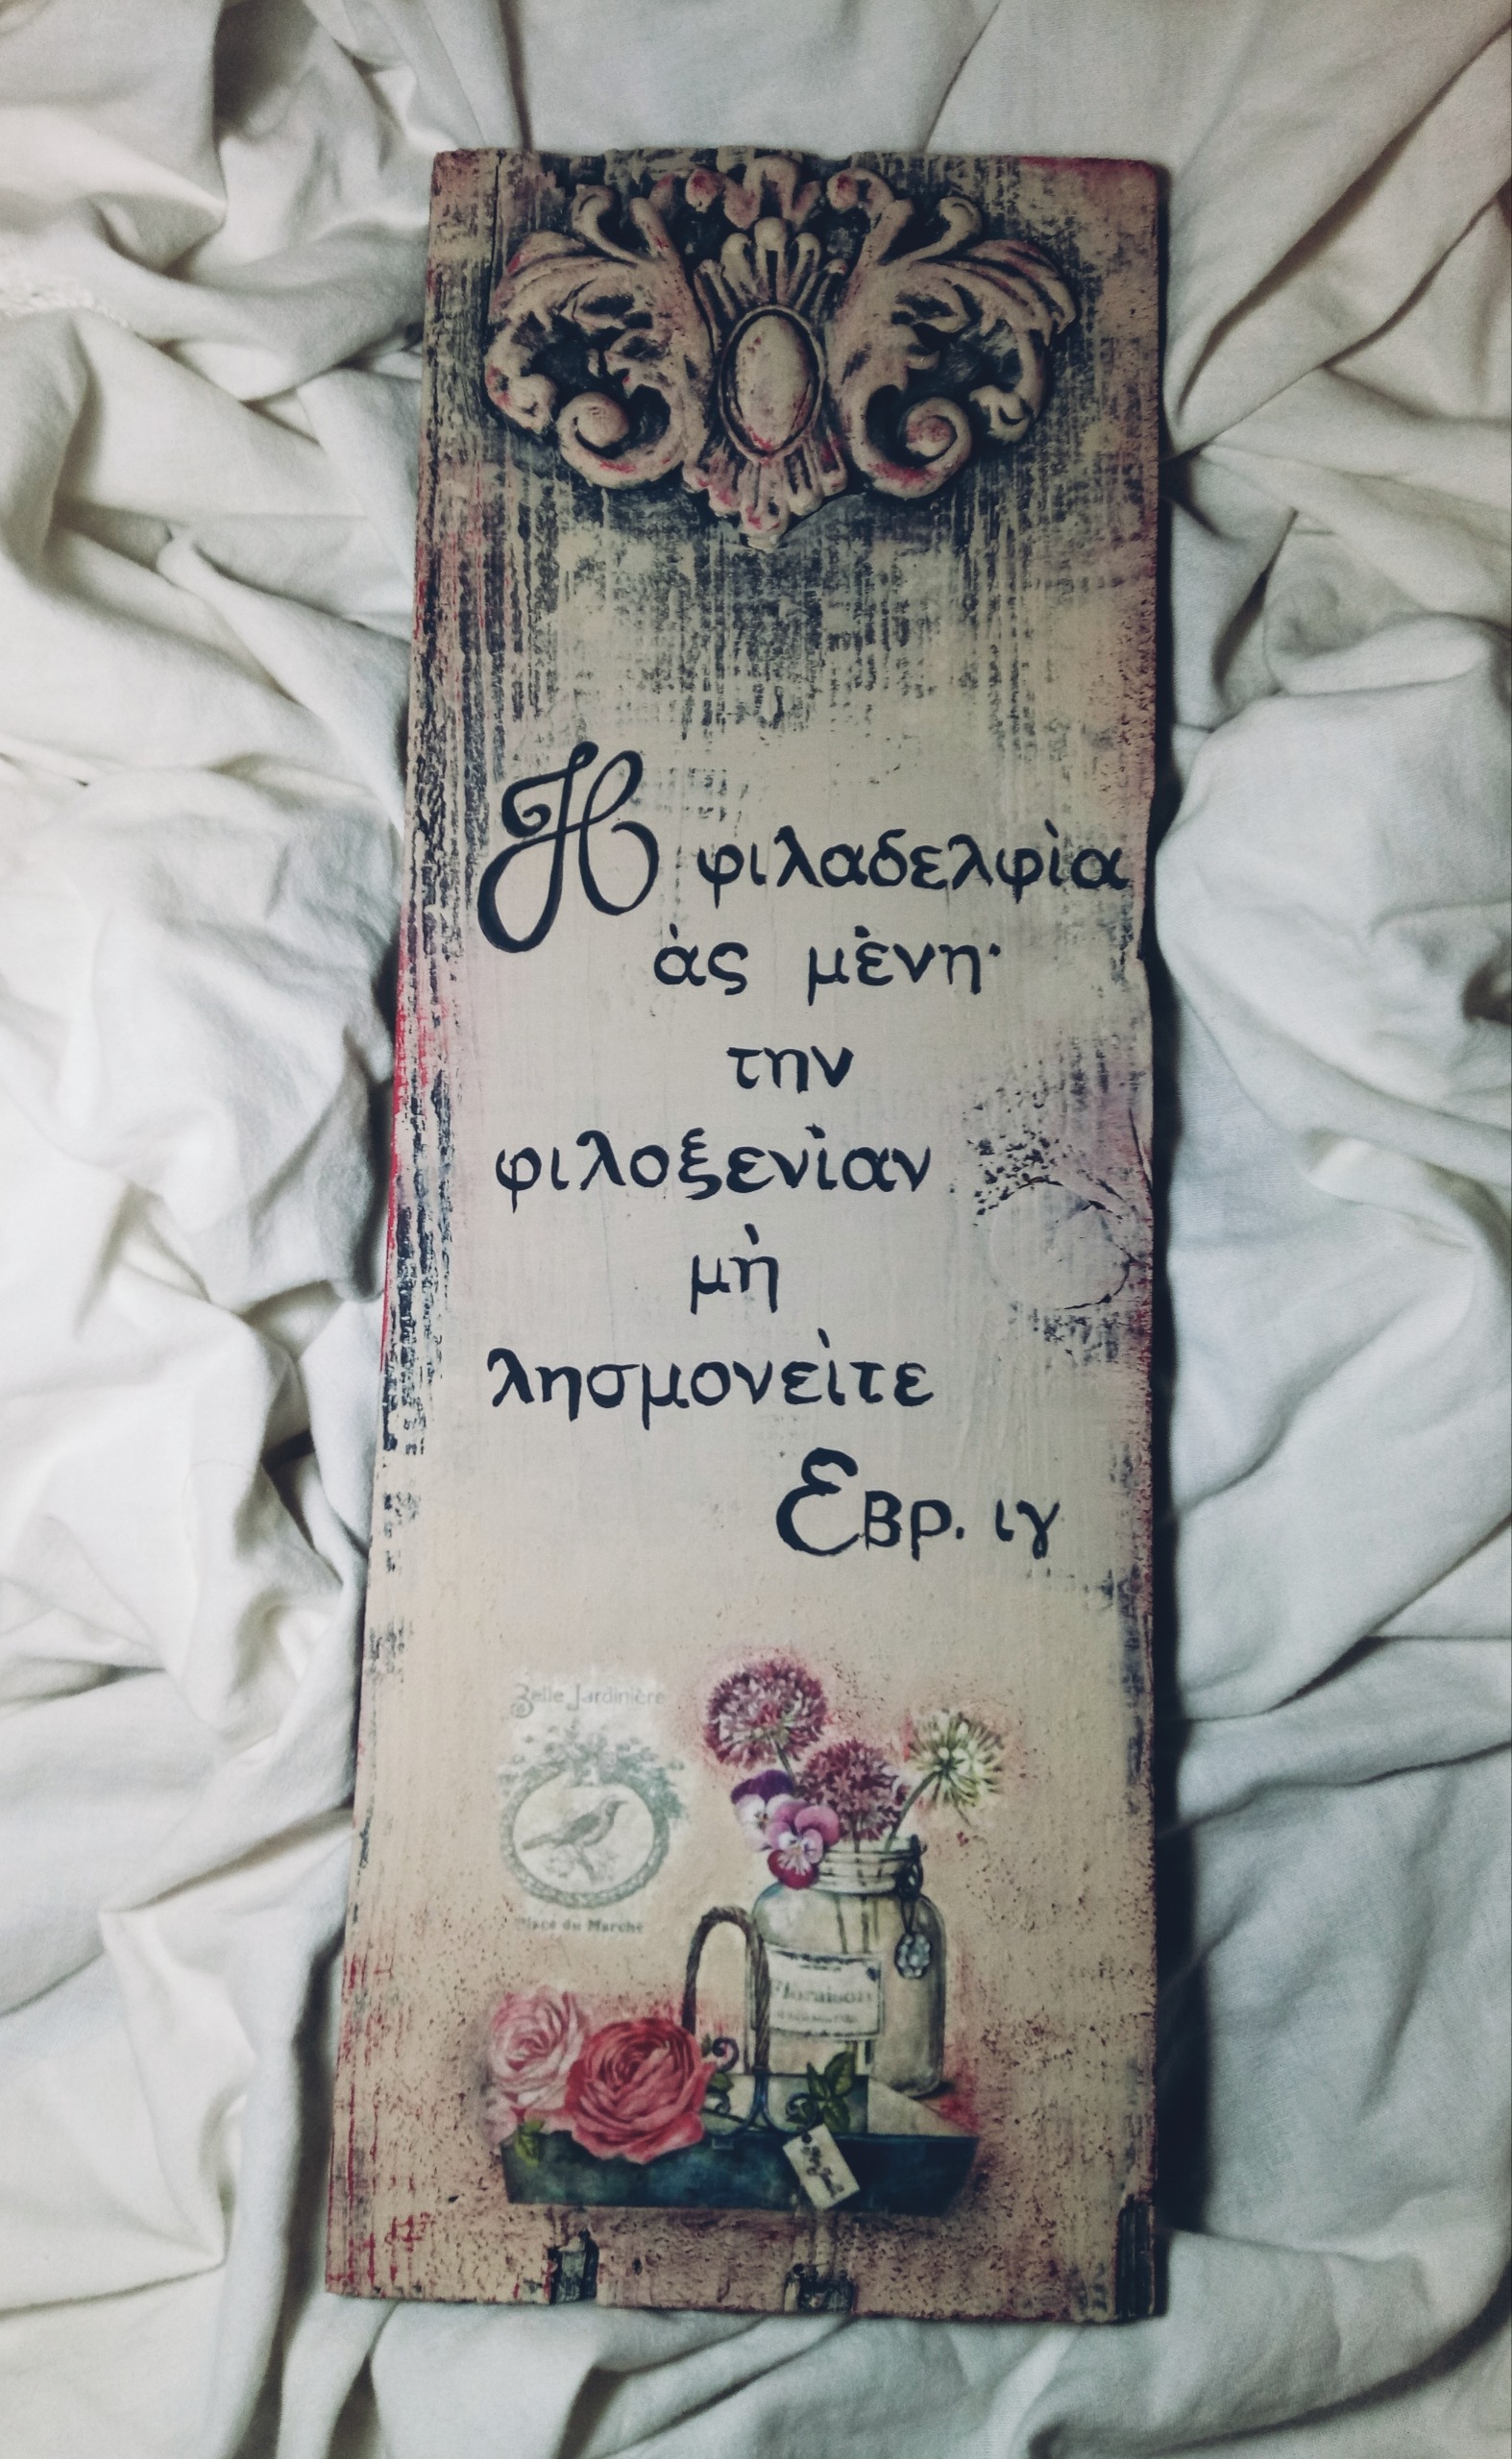 Η φιλαδελφὶα
ὰς μὲνη·
την
φιλοξενὶαν
μὴ
λησμονεὶτε
Εβρ. ιγ
Belle Jardinière
Place du Marché
Floraison